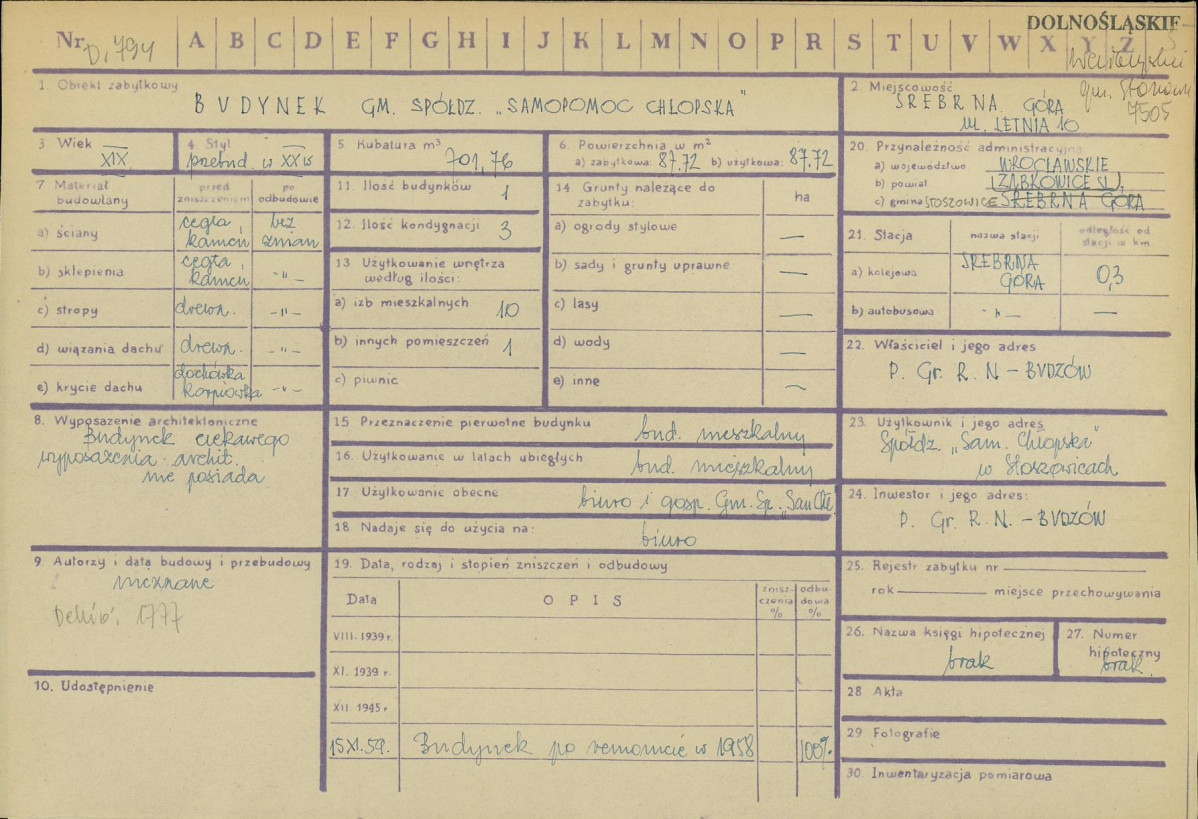 DOLNOŚLĄSKIE
Nr D.794 A B C D E F G H I J K L M N O P R S T U V W X Y Z
gm. Stoszow
7505
1. Obiekt zabytkowy
BUDYNEK GM. SPÓŁDZ. „SAMOPOMOC CHŁOPSKA"
2. Miejscowość
SREBRNA GÓRA
ul. LETNIA 10
3 Wiek XIX
4. Styl
przebud. w XX w
5. Kubatura m³
701,76
6. Powierzchnia w m²
a) zabytkowa: 87.72 b) użytkowa: 87.72
20. Przynależność administracyjna
a) województwo WROCŁAWSKIE
b) powiat (ZĄBKOWICE ŚL),
c) gmina STOSZOWICE SREBRNA GÓRA
7 Materiał budowlany
przed zniszczeniem
po odbudowie
a) ściany cegła, kamień bez zmian
b) sklepienia cegła, kamień -"-
c) stropy drewn. -"-
d) wiązania dachu drewn. -"-
e) krycie dachu dachówka karpiówka -"-
11. Ilość budynków 1
12. Ilość kondygnacji 3
13. Użytkowanie wnętrza
według ilości:
a) izb mieszkalnych 10
b) innych pomieszczeń 1
c) piwnic
14. Grunty należące do
zabytku: ha
a) ogrody stylowe —
b) sady i grunty uprawne —
c) lasy —
d) wody —
e) inne ~
21. Stacja nazwa stacji odległość od stacji w km
a) kolejowa SREBRNA GÓRA 0,3
b) autobusowa -"- —
22. Właściciel i jego adres
P. Gr. R. N – BUDZÓW
8. Wyposażenie architektoniczne
Budynek ciekawego
wyposażenia archit.
nie posiada
15 Przeznaczenie pierwotne budynku bud. mieszkalny
16. Użytkowanie w latach ubiegłych bud. mieszkalny
17. Użytkowanie obecne biuro i gosp. Gm. Sp. „Sam Chł.
18. Nadaje się do użycia na: biuro
23. Użytkownik i jego adres
Spółdz. „Sam. Chłopska"
w Stoszowicach
24. Inwestor i jego adres:
P. Gr. R. N. – BUDZÓW
9. Autorzy i data budowy i przebudowy
nieznane
1777
10. Udostępnienie
19. Data, rodzaj i stopień zniszczeń i odbudowy
Data OPIS zniszczenia % odbudowa %
VIII. 1939 r.
XI. 1939 r.
XII. 1945 r
15 XI. 59. Budynek po remoncie w 1958 100%
25. Rejestr zabytku nr
rok miejsce przechowywania
26. Nazwa księgi hipotecznej
brak
27. Numer hipoteczny
brak.
28 Akta
29. Fotografie
30. Inwentaryzacja pomiarowa